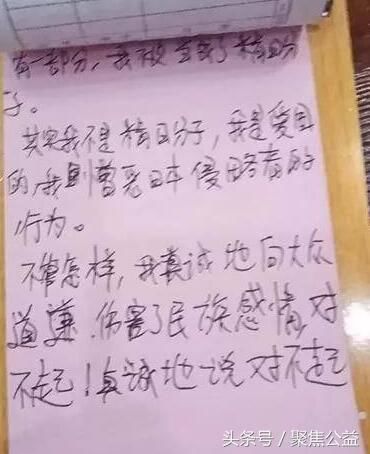 有一部分，我被当成了精日分
子。
其实我不是精日分子，我是爱国
的，我憎恶日本侵略者的
行为。
不管怎样，我真诚地向大众
道谦，伤害了民族感情，对
不起！真诚地说对不起
头条号／聚焦公益